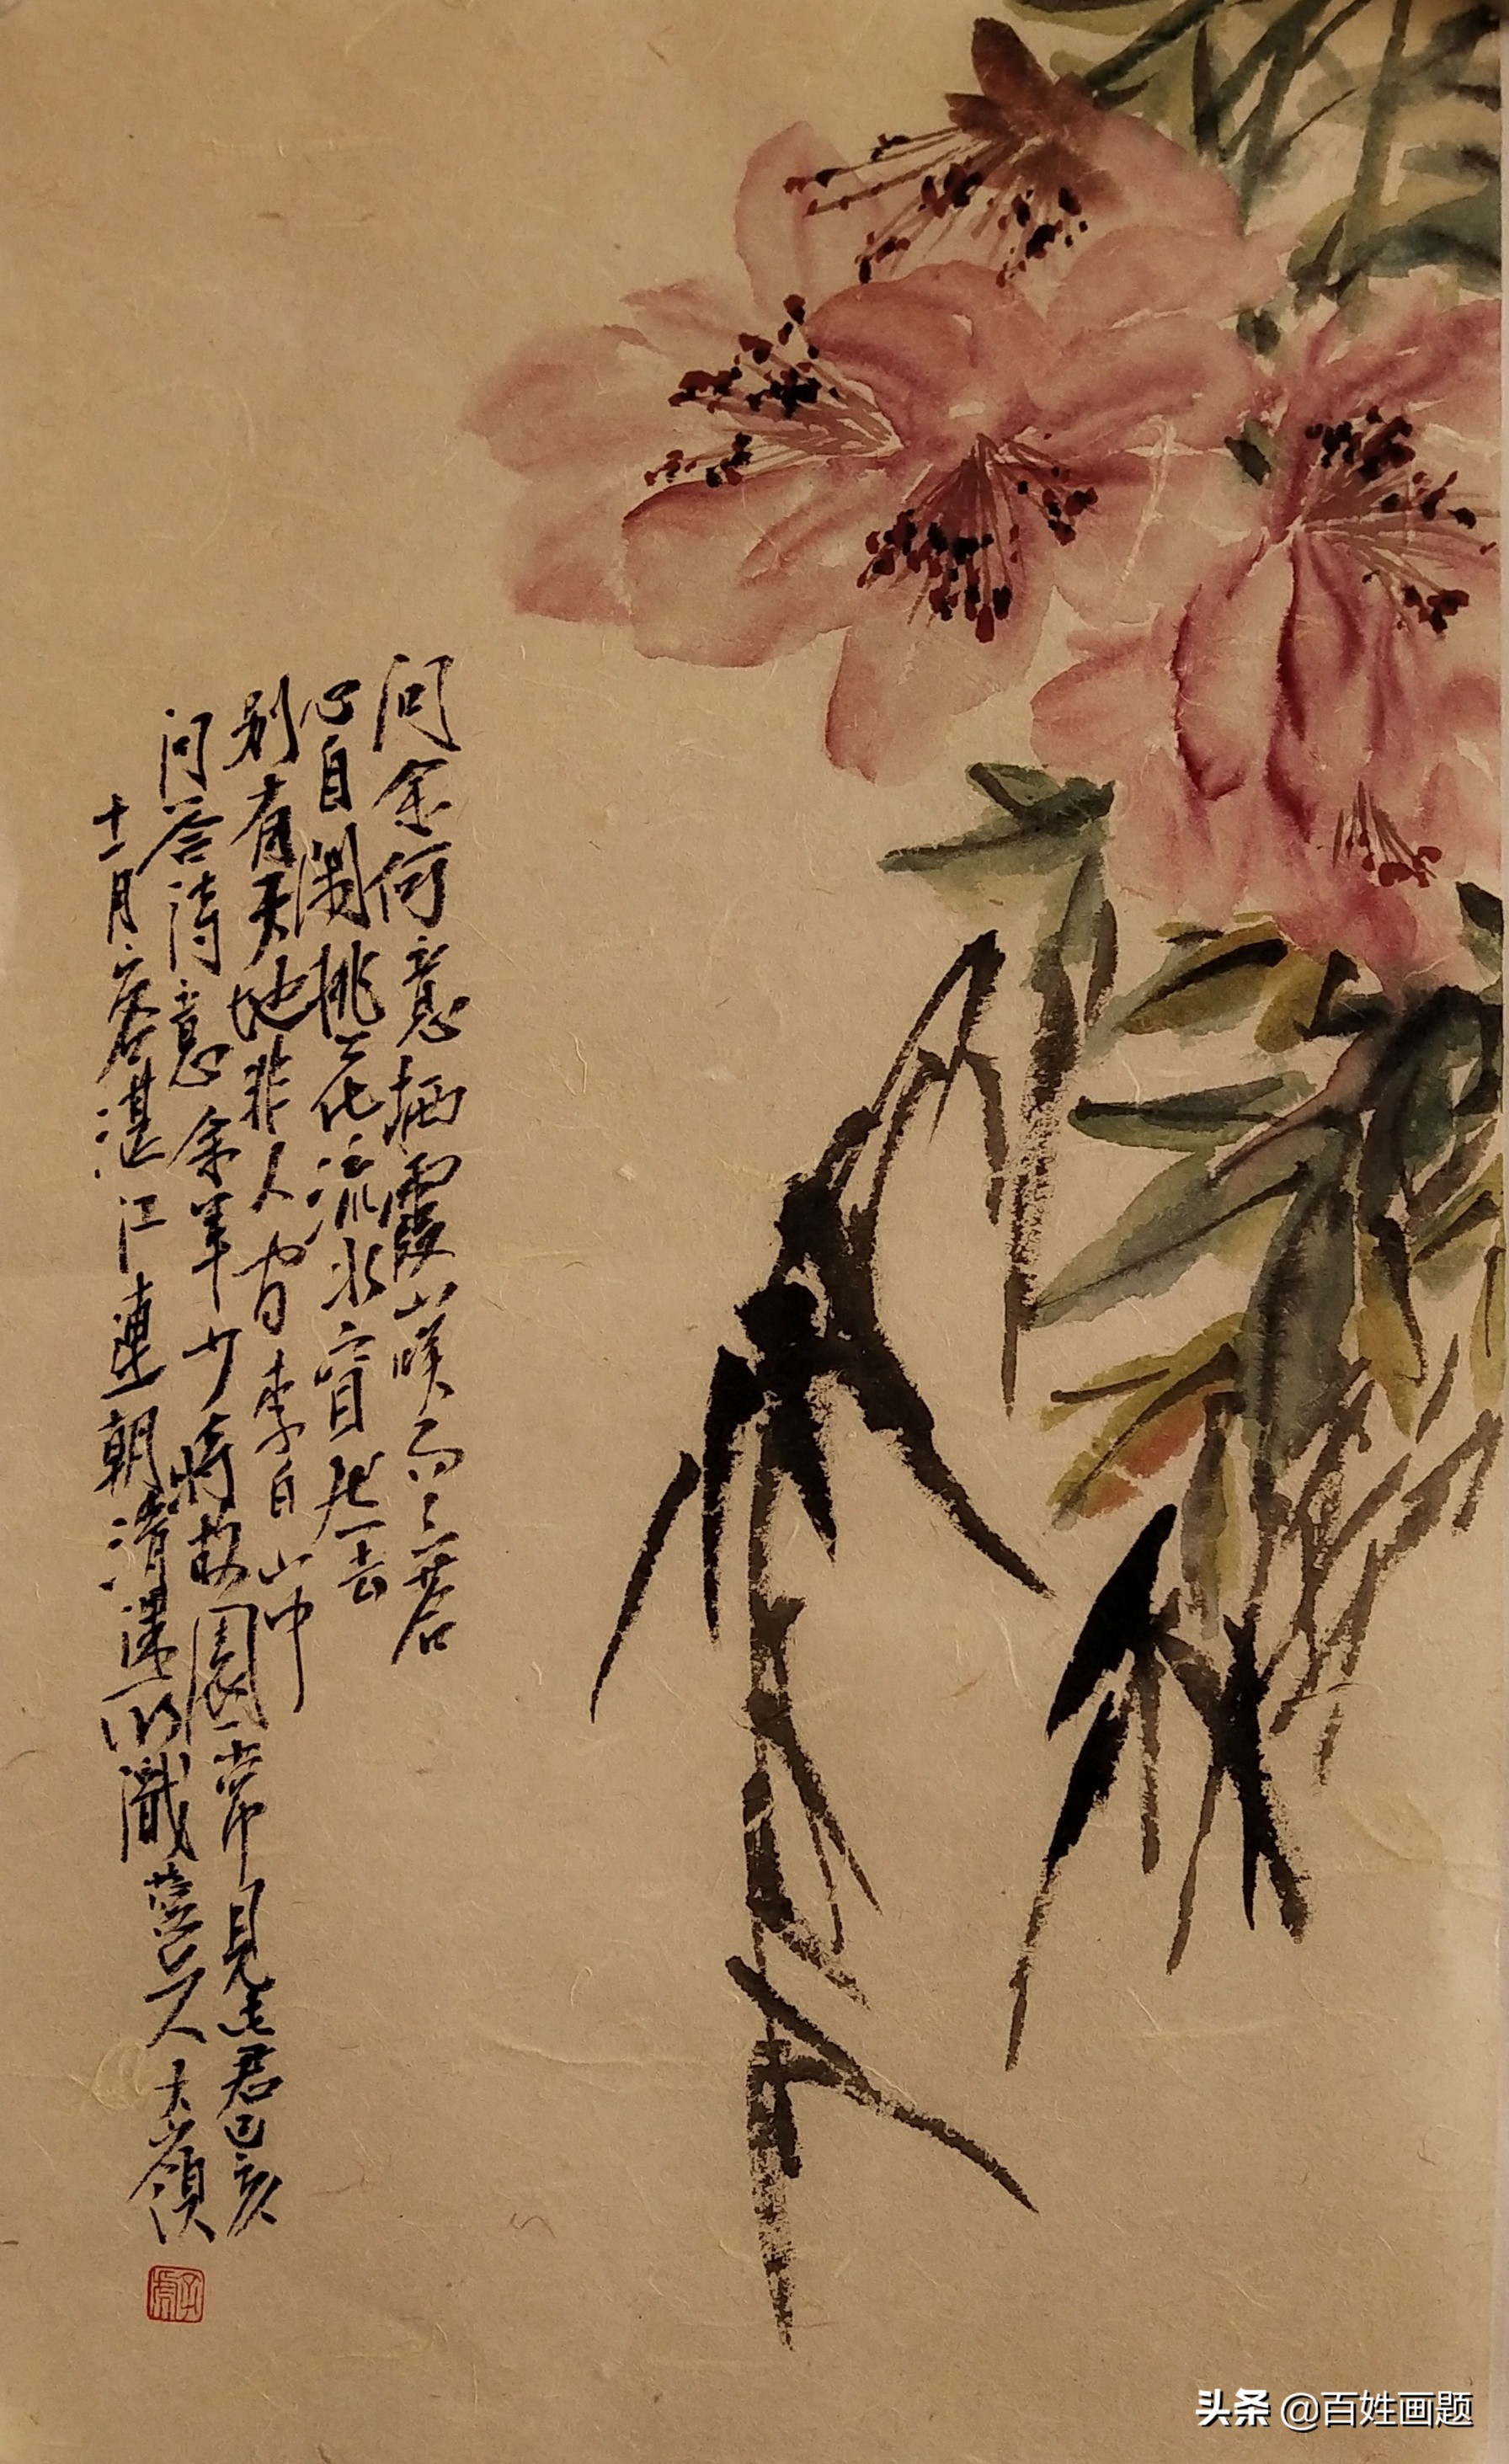 问余何意栖霞山笑而不答
心自閑桃花流水窅然去
别有天地非人间李白山中
问答詩意余年少時故園常見君己亥
十一月客湛江連朝清人大嶺
头条 @百姓画题